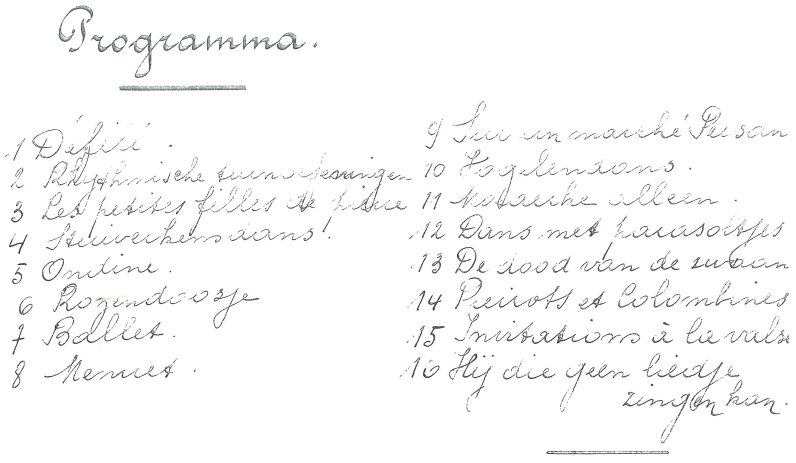 Programma.
1 Défilé.
2 Rhythmische turnoefeningen
3 Les petites filles de pierre
4 Steuverkensdans.
5 Ondine.
6 Rozendoosje
7 Ballet.
8 Menuet.
9 Sur un marché Persan
10 Vogelendans.
11 alleen.
12 Dans met parasoltjes
13 De dood van de zwaan
14 Pierrots et Colombines
15 Invitations à la valse
16 Hij die geen liedje
zingen kan.